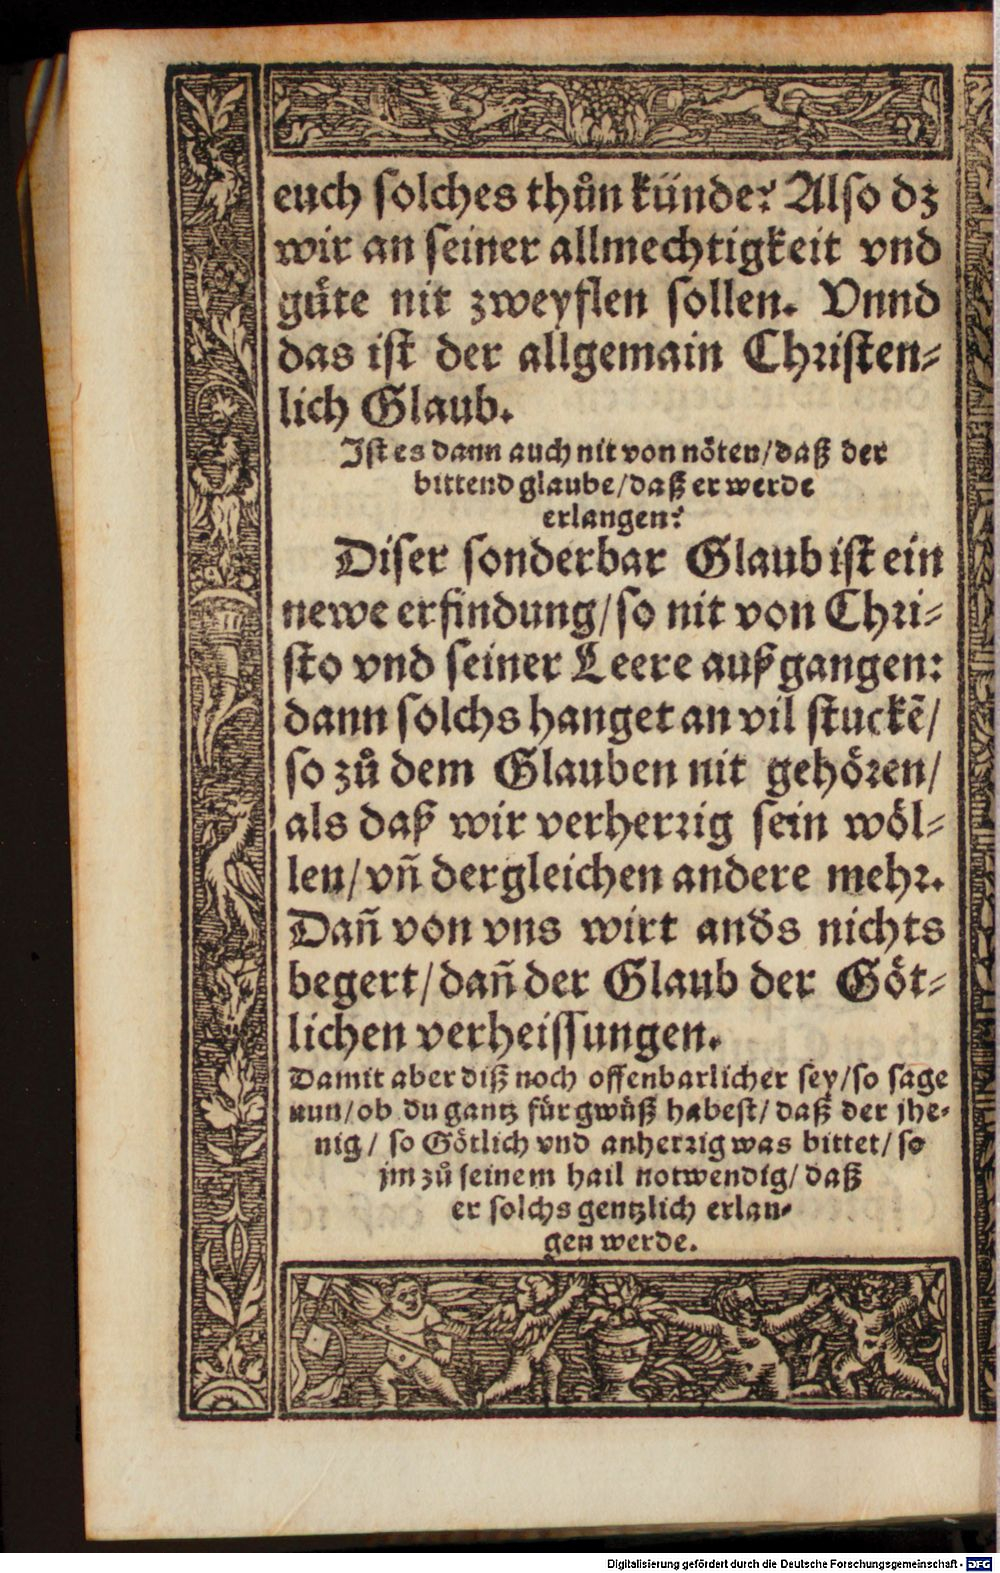 euch solches thůn künde? Also dz
wir an seiner allmechtigkeit vnd
gůte nit zweyflen sollen. Vnnd
das ist der allgemain Christen-
lich Glaub.
Ist es dann auch nit von nöten/daß der
bittend glaube/daß er werde
erlangen?
Diser sonderbar Glaub ist ein
newe erfindung/so nit von Chri-
sto vnd seiner Leere außgangen:
dann solchs hanget an vil stuckē/
so zů dem Glauben nit gehören/
als daß wir verherrig sein wöl-
len/vn̄ dergleichen andere mehr.
Dan̄ von vns wirt anđs nichts
begert/dan̄ der Glaub der Göt-
lichen verheissungen.
Damit aber diß noch offenbarlicher sey/so sage
nun/ob du gantz für gwüß habest/daß der jhe-
nig/ so Götlich vnd anherrig was bittet/so
jm zů seinem hail notwendig/daß
er solchs gentzlich erlan-
gen werde.
Digitalisierung gefördert durch die Deutsche Forschungsgemeinschaft - DFG